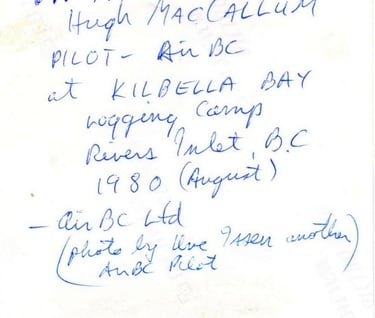 Hugh MacCALLUM
PILOT - Air BC
at KILBELLA BAY
Logging Camp
Rivers Inlet, B.C
1980 (August)
- Air BC Ltd
(photo by another)
AirBC Pilot